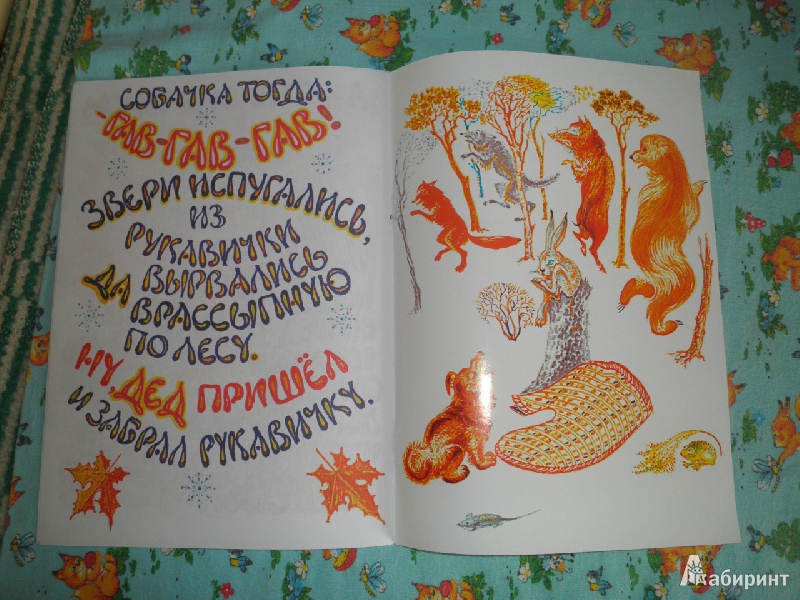 СОБАЧКА ТОГДА:
-ГАВ-ГАВ-ГАВ!
ЗВЕРИ ИСПУГАЛИСЬ,
ИЗ
РУКАВИЧКИ
ДА ВЫРВАЛИСЬ
ВРАССЫПНУЮ
ПО ЛЕСУ.
НУ, ДЕД ПРИШЁЛ
И ЗАБРАЛ РУКАВИЧКУ.
Лабиринт